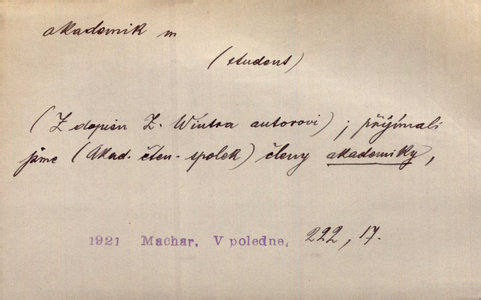 akademik m
(student)
(Z dopisu Z. Wintra autorovi); přijímali
jsme (Akad. čten. spolek) členy akademiky,
1921 Machar, V poledne, 222, 17.